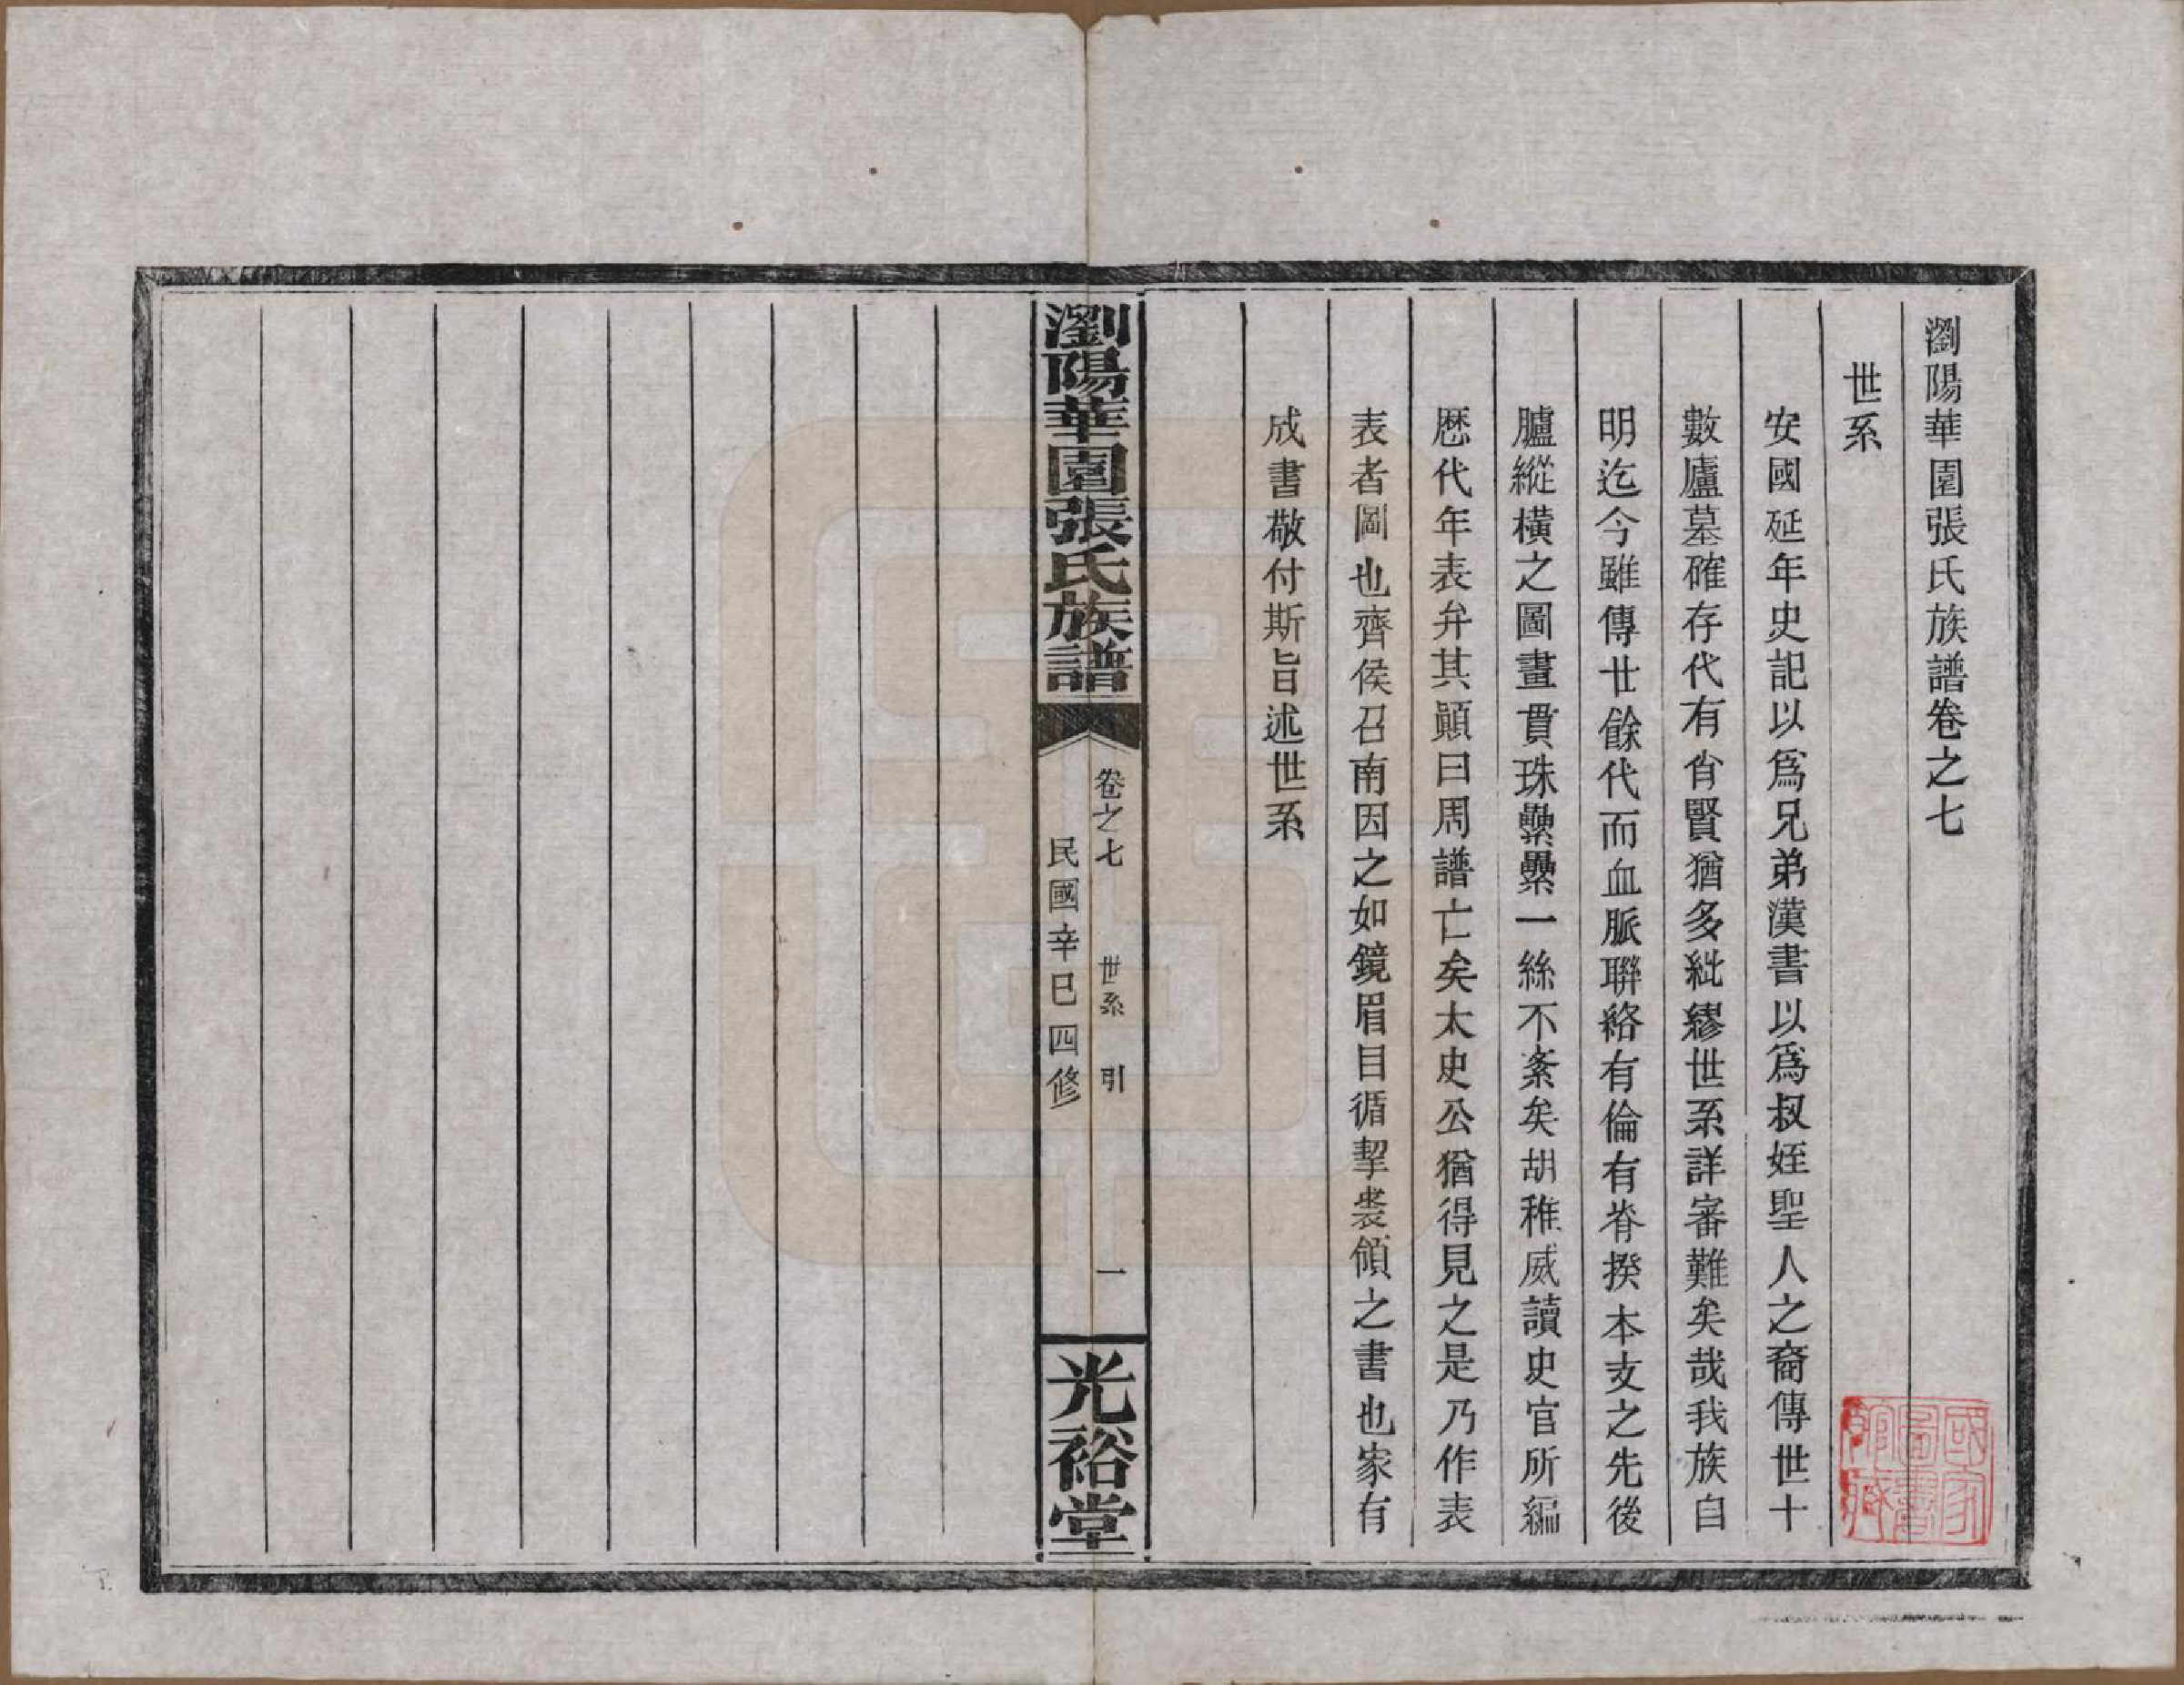 瀏陽華園張氏族譜卷之七
世系
安國延年史記以爲兄弟漢書以爲叔姪聖人之裔傳世十
數廬墓確存代有肖賢猶多紕繆世系詳審難矣哉我族自
明迄今雖傳廿餘代而血脈聯絡有倫有脊揆本支之先後
臚縱橫之圖畫貫珠纍纍一絲不紊矣胡稚威讀史官所編
歷代年表弁其顚曰周譜亡矣太史公猶得見之是乃作表
表者圖也齊侯召南因之如鏡眉目循挈裘領之書也家有
成書敬付斯旨述世系
瀏陽華園張氏族譜
卷之七 世系 引 一
民國辛巳四修
光裕堂
國家圖書館藏